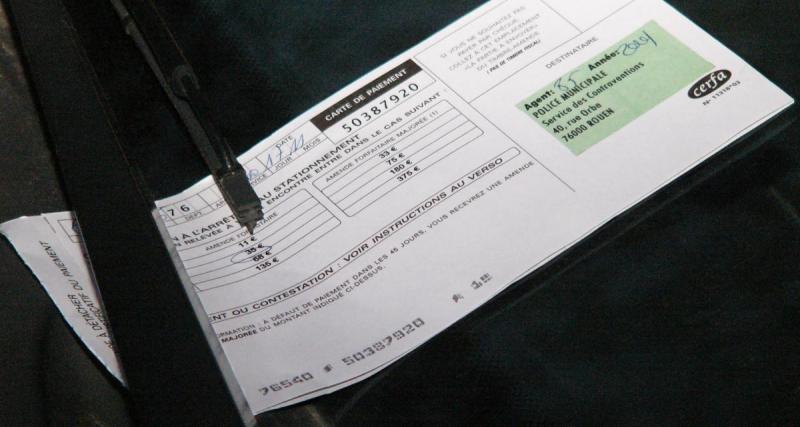 SI VOUS NE SOUHAITEZ PAS
PAYER PAR CHÈQUE,
COLLEZ À CET EMPLACEMENT
«LA PARTIE À ENVOYER»
DU TIMBRE-AMENDE
(PAS DE TIMBRE FISCAL)
DESTINATAIRE
Agent: Année:
POLICE MUNICIPALE
Service des Contraventions
40, rue Orbe
76000 ROUEN
cerfa
CARTE DE PAIEMENT
50387920
DATE
JOUR MOIS
17 11
76
DEPT
N À L'ARRÊT AU STATIONNEMENT
N RELEVÉE À ENCONTRE ENTRE DANS LE CAS SUIVANT
AMENDE FORFAITAIRE
11 €
35 €
68 €
135 €
AMENDE FORFAITAIRE MAJORÉE (1)
33 €
75 €
180 €
375 €
ENT OU CONTESTATION : VOIR INSTRUCTIONS AU VERSO
ORMATION À DÉFAUT DE PAIEMENT DANS LES 45 JOURS, VOUS RECEVREZ UNE AMENDE
MAJORÉE DU MONTANT INDIQUÉ CI-DESSUS.
76540 50387920
À DÉTACHER
DU PAIEMENT